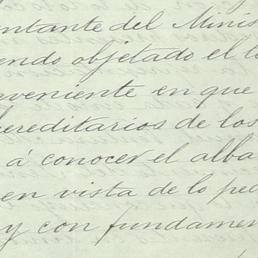 ntante del Minis
endo objetado el t
eveniente en que
ereditarios de los
á conocer el alba
en vista de lo pe
y con fundamen